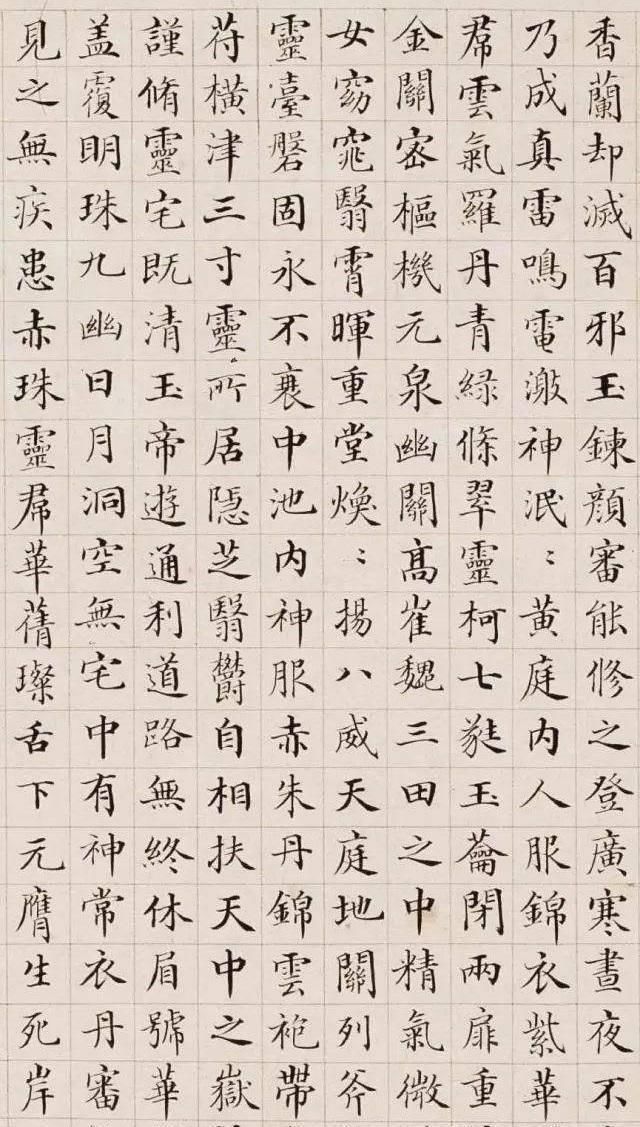 香蘭却滅百邪玉鍊顔審能修之登廣寒晝夜不
乃成真雷鳴電激神泯〻黄庭内人服錦衣紫華
帬雲氣羅丹青緑絛翠靈柯七蕤玉蘥閉兩扉重
金關密樞機元泉幽關髙崔巍三田之中精氣微
女窈窕翳霄暉重堂焕〻揚八威天庭地關列斧
靈臺磐固永不衰中池内神服赤朱丹錦雲袍帶
苻橫津三寸靈所居隠芝翳欝自相扶天中之嶽
謹脩靈宅既清玉帝遊通利道路無終休眉號華
盖覆明珠九幽日月洞空無宅中有神常衣丹審
見之無疾患赤珠靈帬華蒨璨舌下元膺生死岸